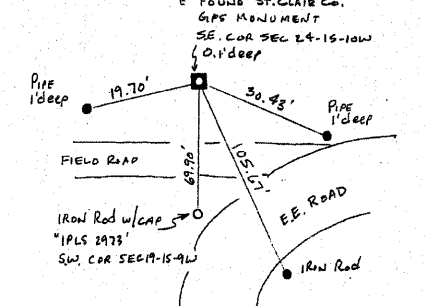 FOUND ST. CLAIR CO.
GPS MONUMENT
S.E. COR SEC 24-1S-10W
0.1' deep
PIPE
1' deep
19.70'
30.43'
PIPE
1' deep
FIELD ROAD
69.90'
105.67'
E.E. ROAD
IRON Rod w/CAP
"IPLS 2973"
S.W. COR SEC 19-1S-9W
IRON Rod